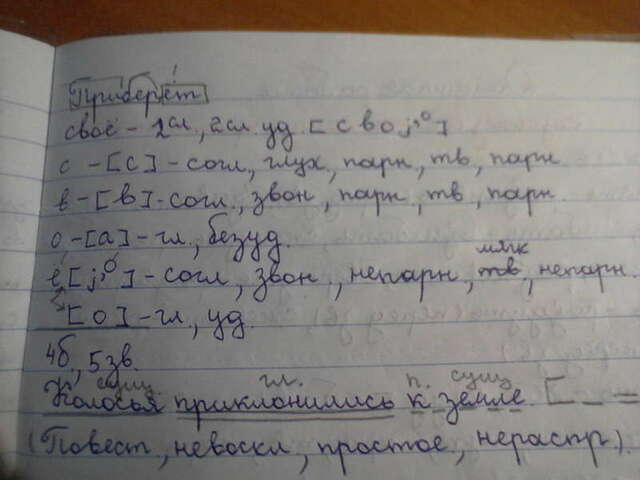 Приберёт
своё - 2сл., 2сл. уд. [свој,о]
с - [с] - согл., глух, парн, тв, парн.
в - [в] - согл., звон, парн, тв, парн.
о - [а] - гл., безуд. мягк
ё [ј,о] - согл., звон., непарн, тв, непарн.
[о] - гл., уд.
4б., 5зв.
сущ. гл. п. сущ
Колосья приклонились к земле. [
(Повест., невоскл, простое, нераспр.).